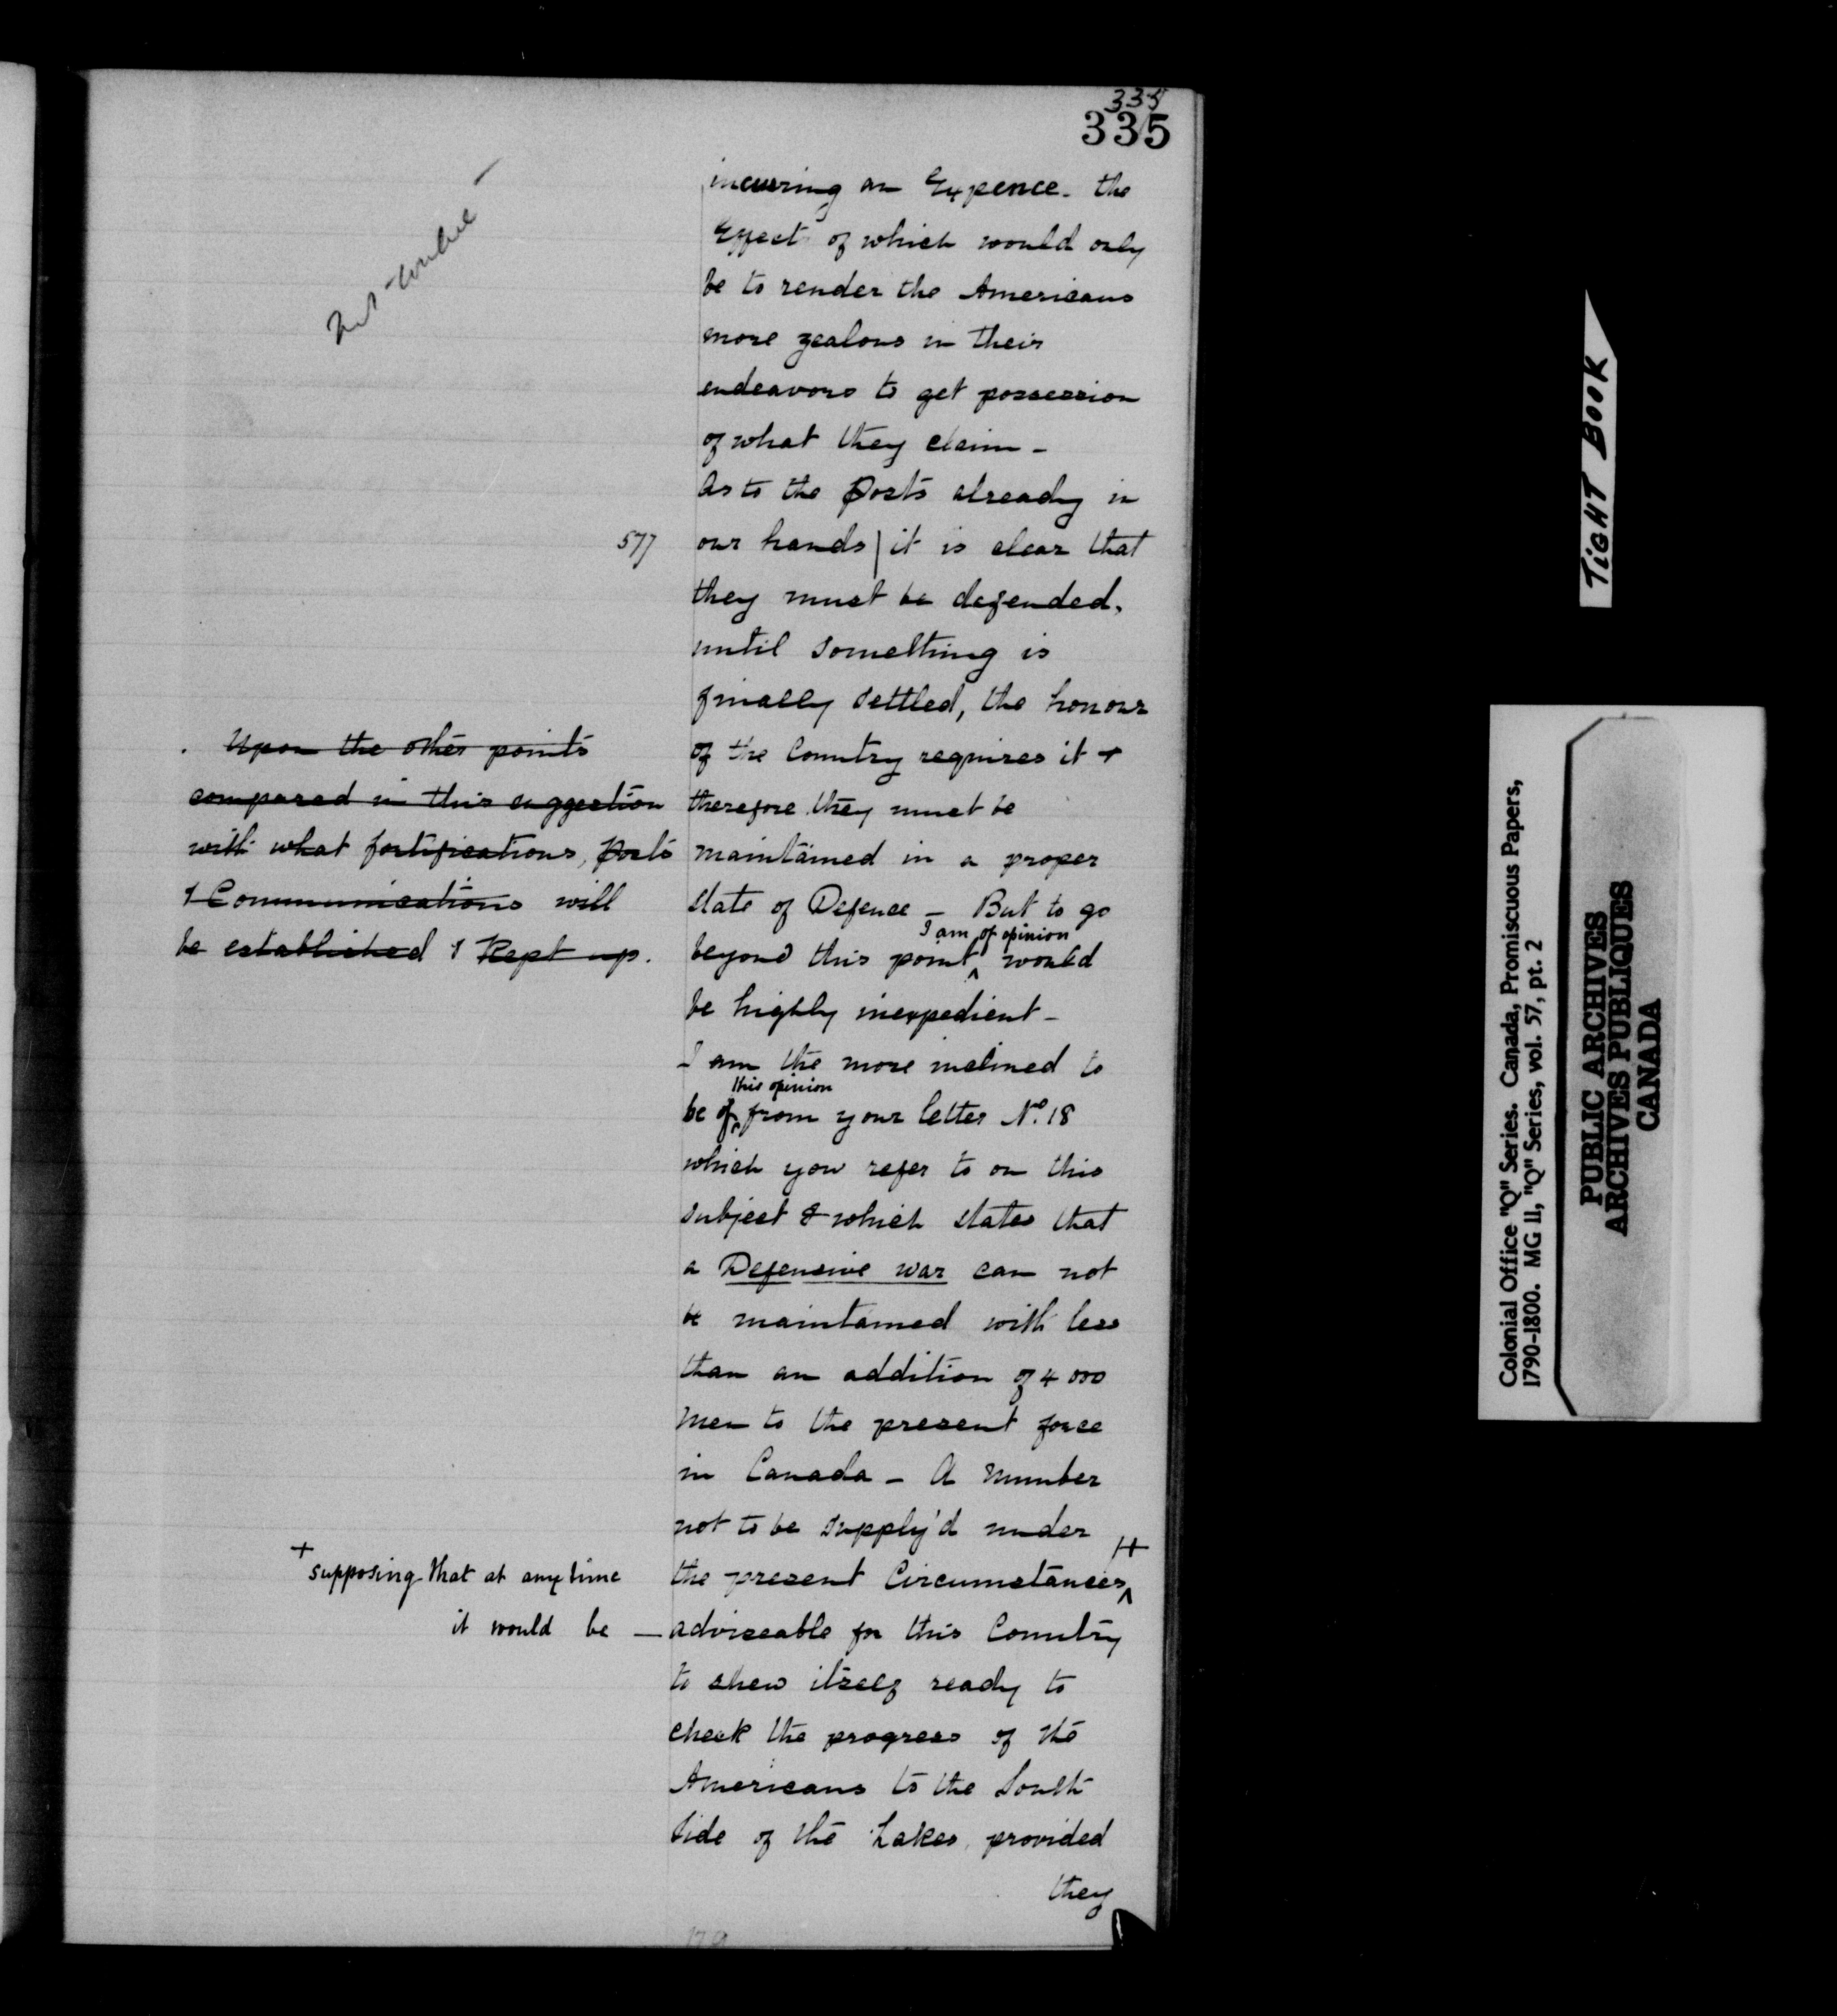 335
335
incurring an Expence - the
Effect of which would only
be to render the Americans
more zealous in their
endeavors to get possession
of what they claim -
As to the Posts already in
577
our hands | it is clear that
they must be defended,
until something is
finally settled, the honour
of the Country requires it +
therefore they must be
maintained in a proper
state of Defence - But to go
I am of opinion
beyond this point ^ would
be highly inexpedient -
I am the more inclined to
this opinion
be of ^ from your letter No. 18
which you refer to on this
subject & which states that
a Defensive war can not
be maintained with less
than an addition of 4000
Men to the present force
in Canada - A Number
not to be supply'd under
the present Circumstances ^ ++
adviseable for this Country
to shew itself ready to
check the progress of the
Americans to the South
Side of the Lakes, provided
they
Upon the other points
compared in this suggestion
with what fortifications, posts
& Communications will
be established & Kept up.
+ supposing that at any time
it would be —
TIGHT BOOK
Colonial Office "Q" Series. Canada, Promiscuous Papers,
1790-1800. MG 11, "Q" Series, vol. 57, pt. 2
PUBLIC ARCHIVES
ARCHIVES PUBLIQUES
CANADA